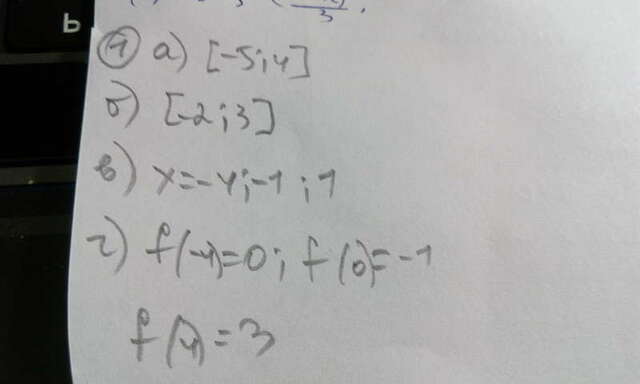 ь
3
① а) [-5;4]
б) [-2;3]
в) x=-4;-1;1
г) f(-4)=0; f(0)=-1
f(4)=3